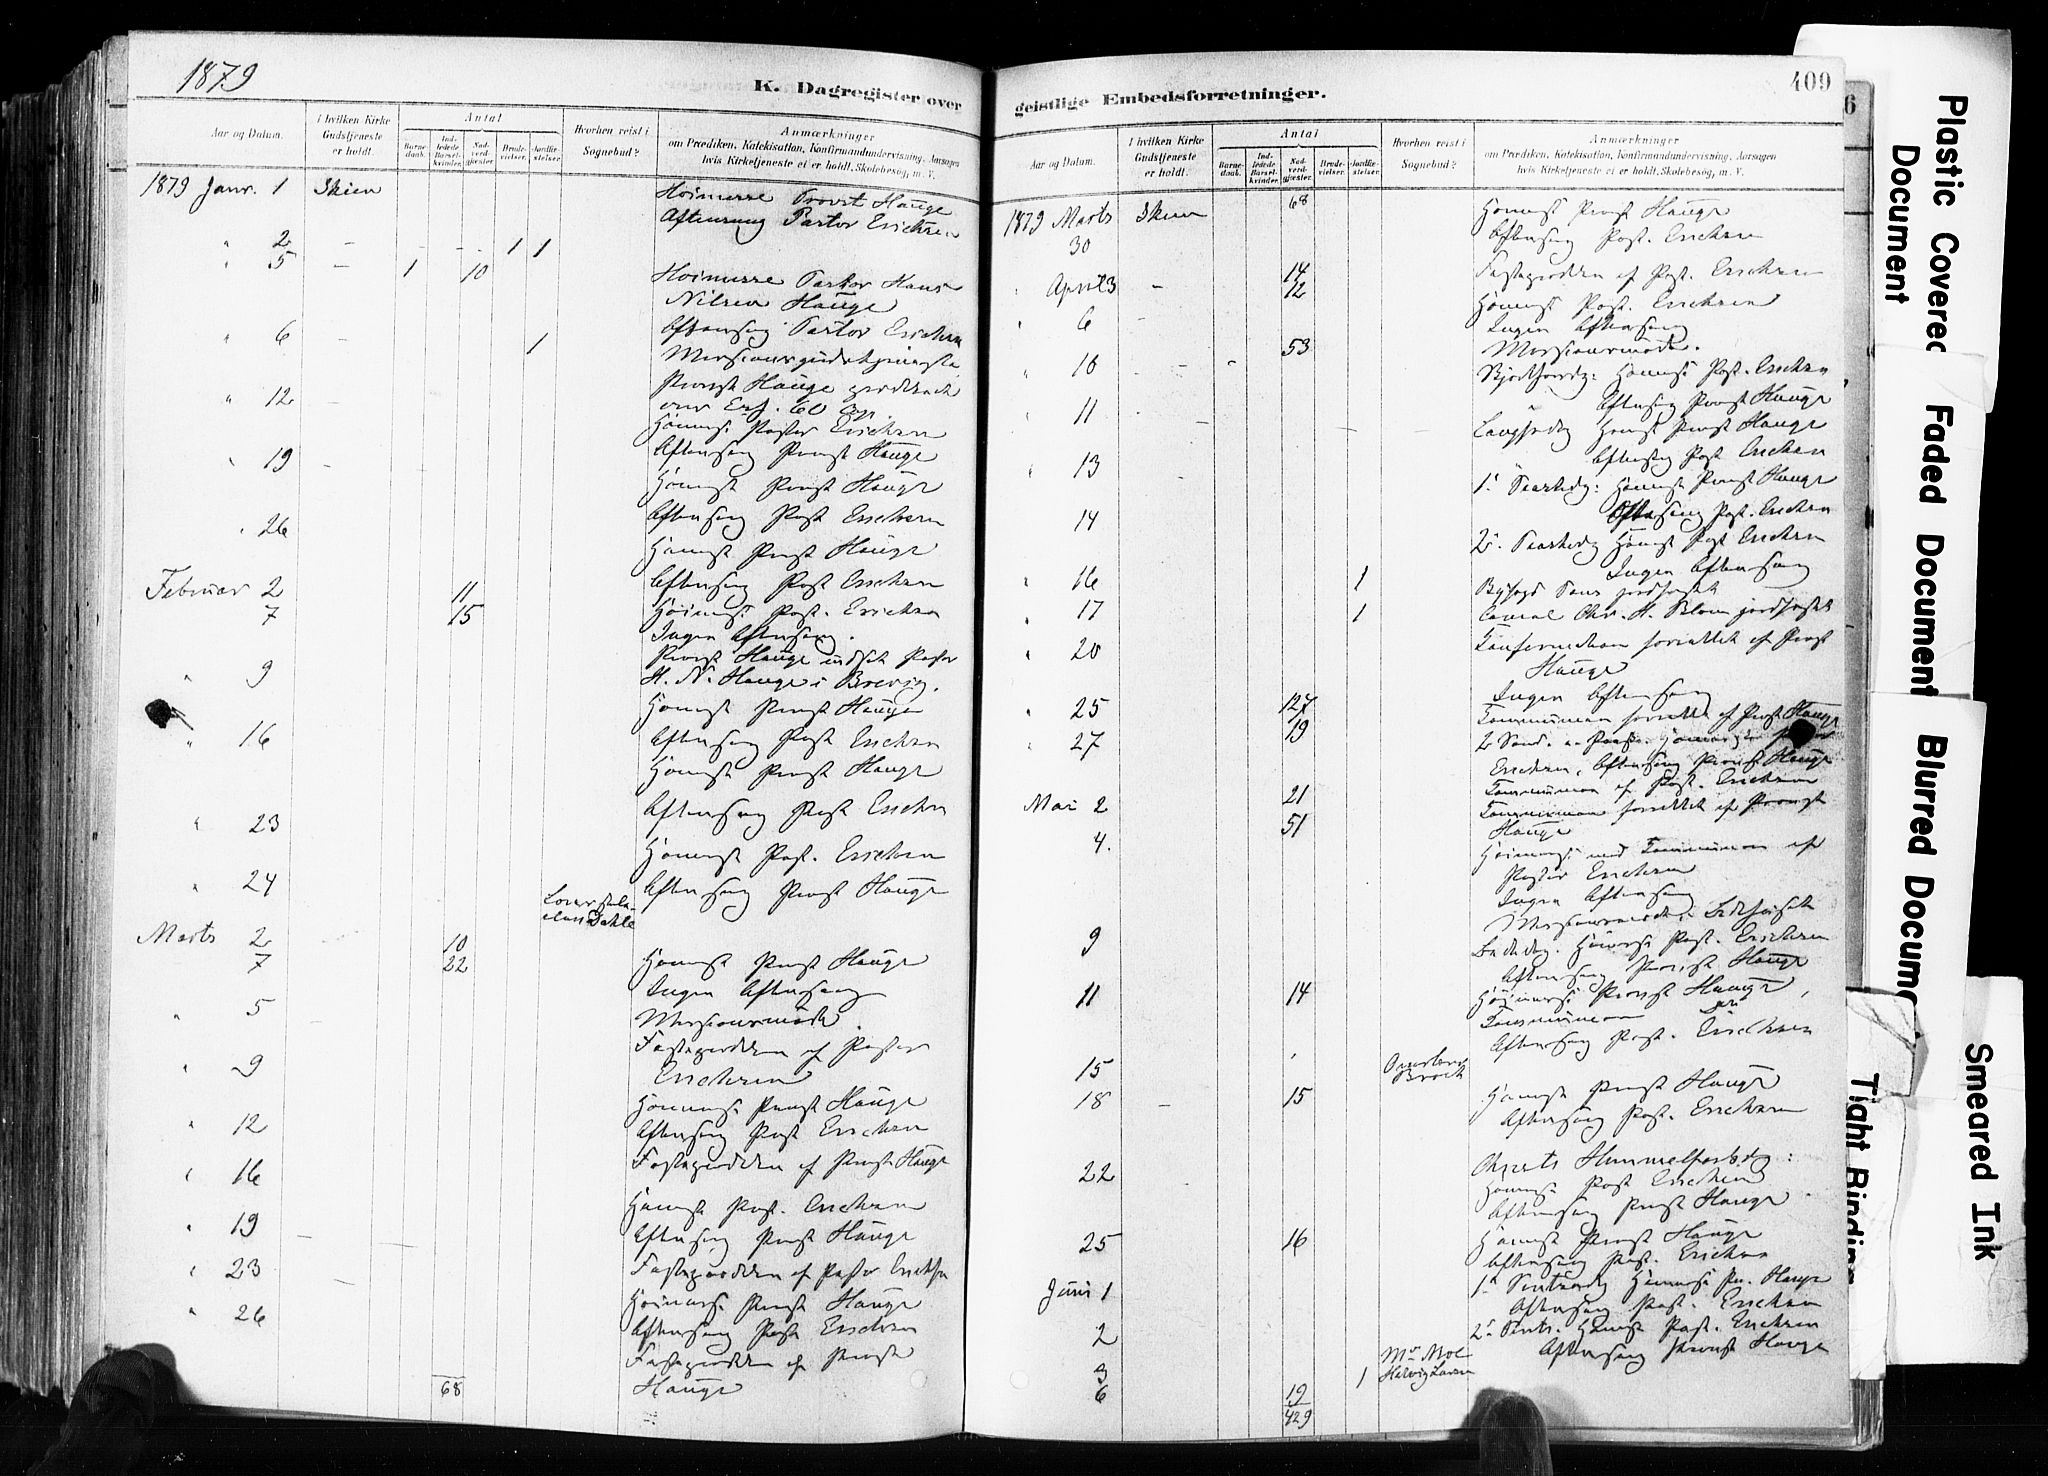 1879
K. Dagregister over
Aar og Datum.
I hvilken Kirke Gudstjeneste er holdt.
Antal
Barne-daab.
Ind-ledede Barsel-kvinder.
Nad-verd-gjester.
Brude-vielser.
Jordfæ-stelser.
Hvorhen reist i Sognebud?
Anmærkninger
om Prædiken, Katekisation, Konfirmandundervisning, Aarsagen
hvis Kirketjeneste ei er holdt, Skolebesøg, m. V.
1879 Janr. 1 Skien Høimesse Provst Hauge
Aftensang Pastor Erichsen
" 2 - - - 1 1
" 5 - 1 10 Høimesse Pastor Hans
Nilsen Hauge
Aftensang Pastor Erichsen
" 6 - 1 Missionsgudstjeneste
Provst Hauge
over Esj. 60 Cap.
" 12 Høimesse Pastor Erichsen
Aftensang Provst Hauge
" 19 - Høimesse Provst Hauge
Aftensang Past Erichsen
" 26 Høimesse Provst Hauge
Aftensang Past Erichsen
Februar 2 11 Høimesse Past. Erichsen
7 15 Ingen Aftensang.
Provst Hauge indsat Pastor
H. N. Hauge i Brevig.
" 9 Høimesse Provst Hauge
Aftensang Past Erichsen
" 16 Høimesse Provst Hauge
Aftensang Past Erichsen
" 23 Høimesse Past. Erichsen
Aftensang Provst Hauge
" 24
Dahle
Marts 2 10 Høimesse Provst Hauge
7 22 Ingen Aftensang
Missionsmøde.
" 5 Fasteprædiken af Pastor
Erichsen
" 9 Høimesse Provst Hauge
Aftensang Past Erichsen
" 12 Fasteprædiken af Provst Hauge
" 16 Høimesse Past. Erichsen
Aftensang Provst Hauge
" 19 Fasteprædiken af Pastor Erichsen
" 23 Høimesse Provst Hauge
Aftensang Past Erichsen
" 26 Fasteprædiken af Provst
68 Hauge
geistlige Embedsforretninger.
409
Aar og Datum.
I hvilken Kirke Gudstjeneste er holdt.
Antal
Barne-daab.
Ind-ledede Barsel-kvinder.
Nad-verd-gjester.
Brude-vielser.
Jordfæ-stelser.
Hvorhen reist i Sognebud?
Anmærkninger
om Prædiken, Katekisation, Konfirmandundervisning, Aarsagen
hvis Kirketjeneste ei er holdt, Skolebesøg, m. V.
1879 Marts Skien 68 Høimesse Provst Hauge
30 Aftensang Past. Erichsen
" April 3 - 14 Fasteprædiken af Past. Erichsen
12
" 6 - Høimesse Past. Erichsen
Ingen Aftensang
53 Missionsmøde.
" 10 - - - Skjærthorsdg: Høimesse Past. Erichsen
Aftensang Provst Hauge
" 11 - - Langfredag Høimesse Provst Hauge
Aftensang Past Erichsen
" 13 1. Paaskedg: Høimesse Provst Hauge
Aftensang Past. Erichsen
14 2. Paaskedg Høimesse Past Erichsen
Ingen Aftensang
" 16 1 Byfogd jordfæstet
" 17 1 Consul Chr. H. Blom jordfæstet
" 20 Konfirmation forrettet af Provst
Hauge
Ingen Aftensang
" 25 127 Communion forrettet af Provst Hauge
" 27 19 2 Sønd. e. Paaske. Høimesse
Erichsen, Aftensang Provst Hauge
Communion af Past. Erichsen
Mai 2 21 Communion forrettet af Provst
51 Hauge
4. Høimesse med Communion af
Pastor Erichsen
Ingen Aftensang
Missionsmøde i Bedehuset
9 Bededag. Høimesse Past. Erichsen
Aftensang Provst Hauge
11 14 Høimesse Provst Hauge,
Communion
Aftensang Past. Erichsen
15 Brock
18 - 15 Høimesse Provst Hauge
Aftensang Past. Erichsen
22 Christi Himmelfartsdg:
Høimesse Past Erichsen
Aftensang Provst Hauge.
25 16 Høimesse Provst Hauge
Aftensang Past. Erichsen
Juni 1 1. Pintsedg Høimesse Pr. Hauge
Aftensang Past. Erichsen
2 2. Pints. Høimesse Past. Erichsen
Aftensang Provst Hauge
3 1
6 19
429
6
Plastic Covered Document
Faded Document
Blurred Docume
Smeared Ink
Tight Binding